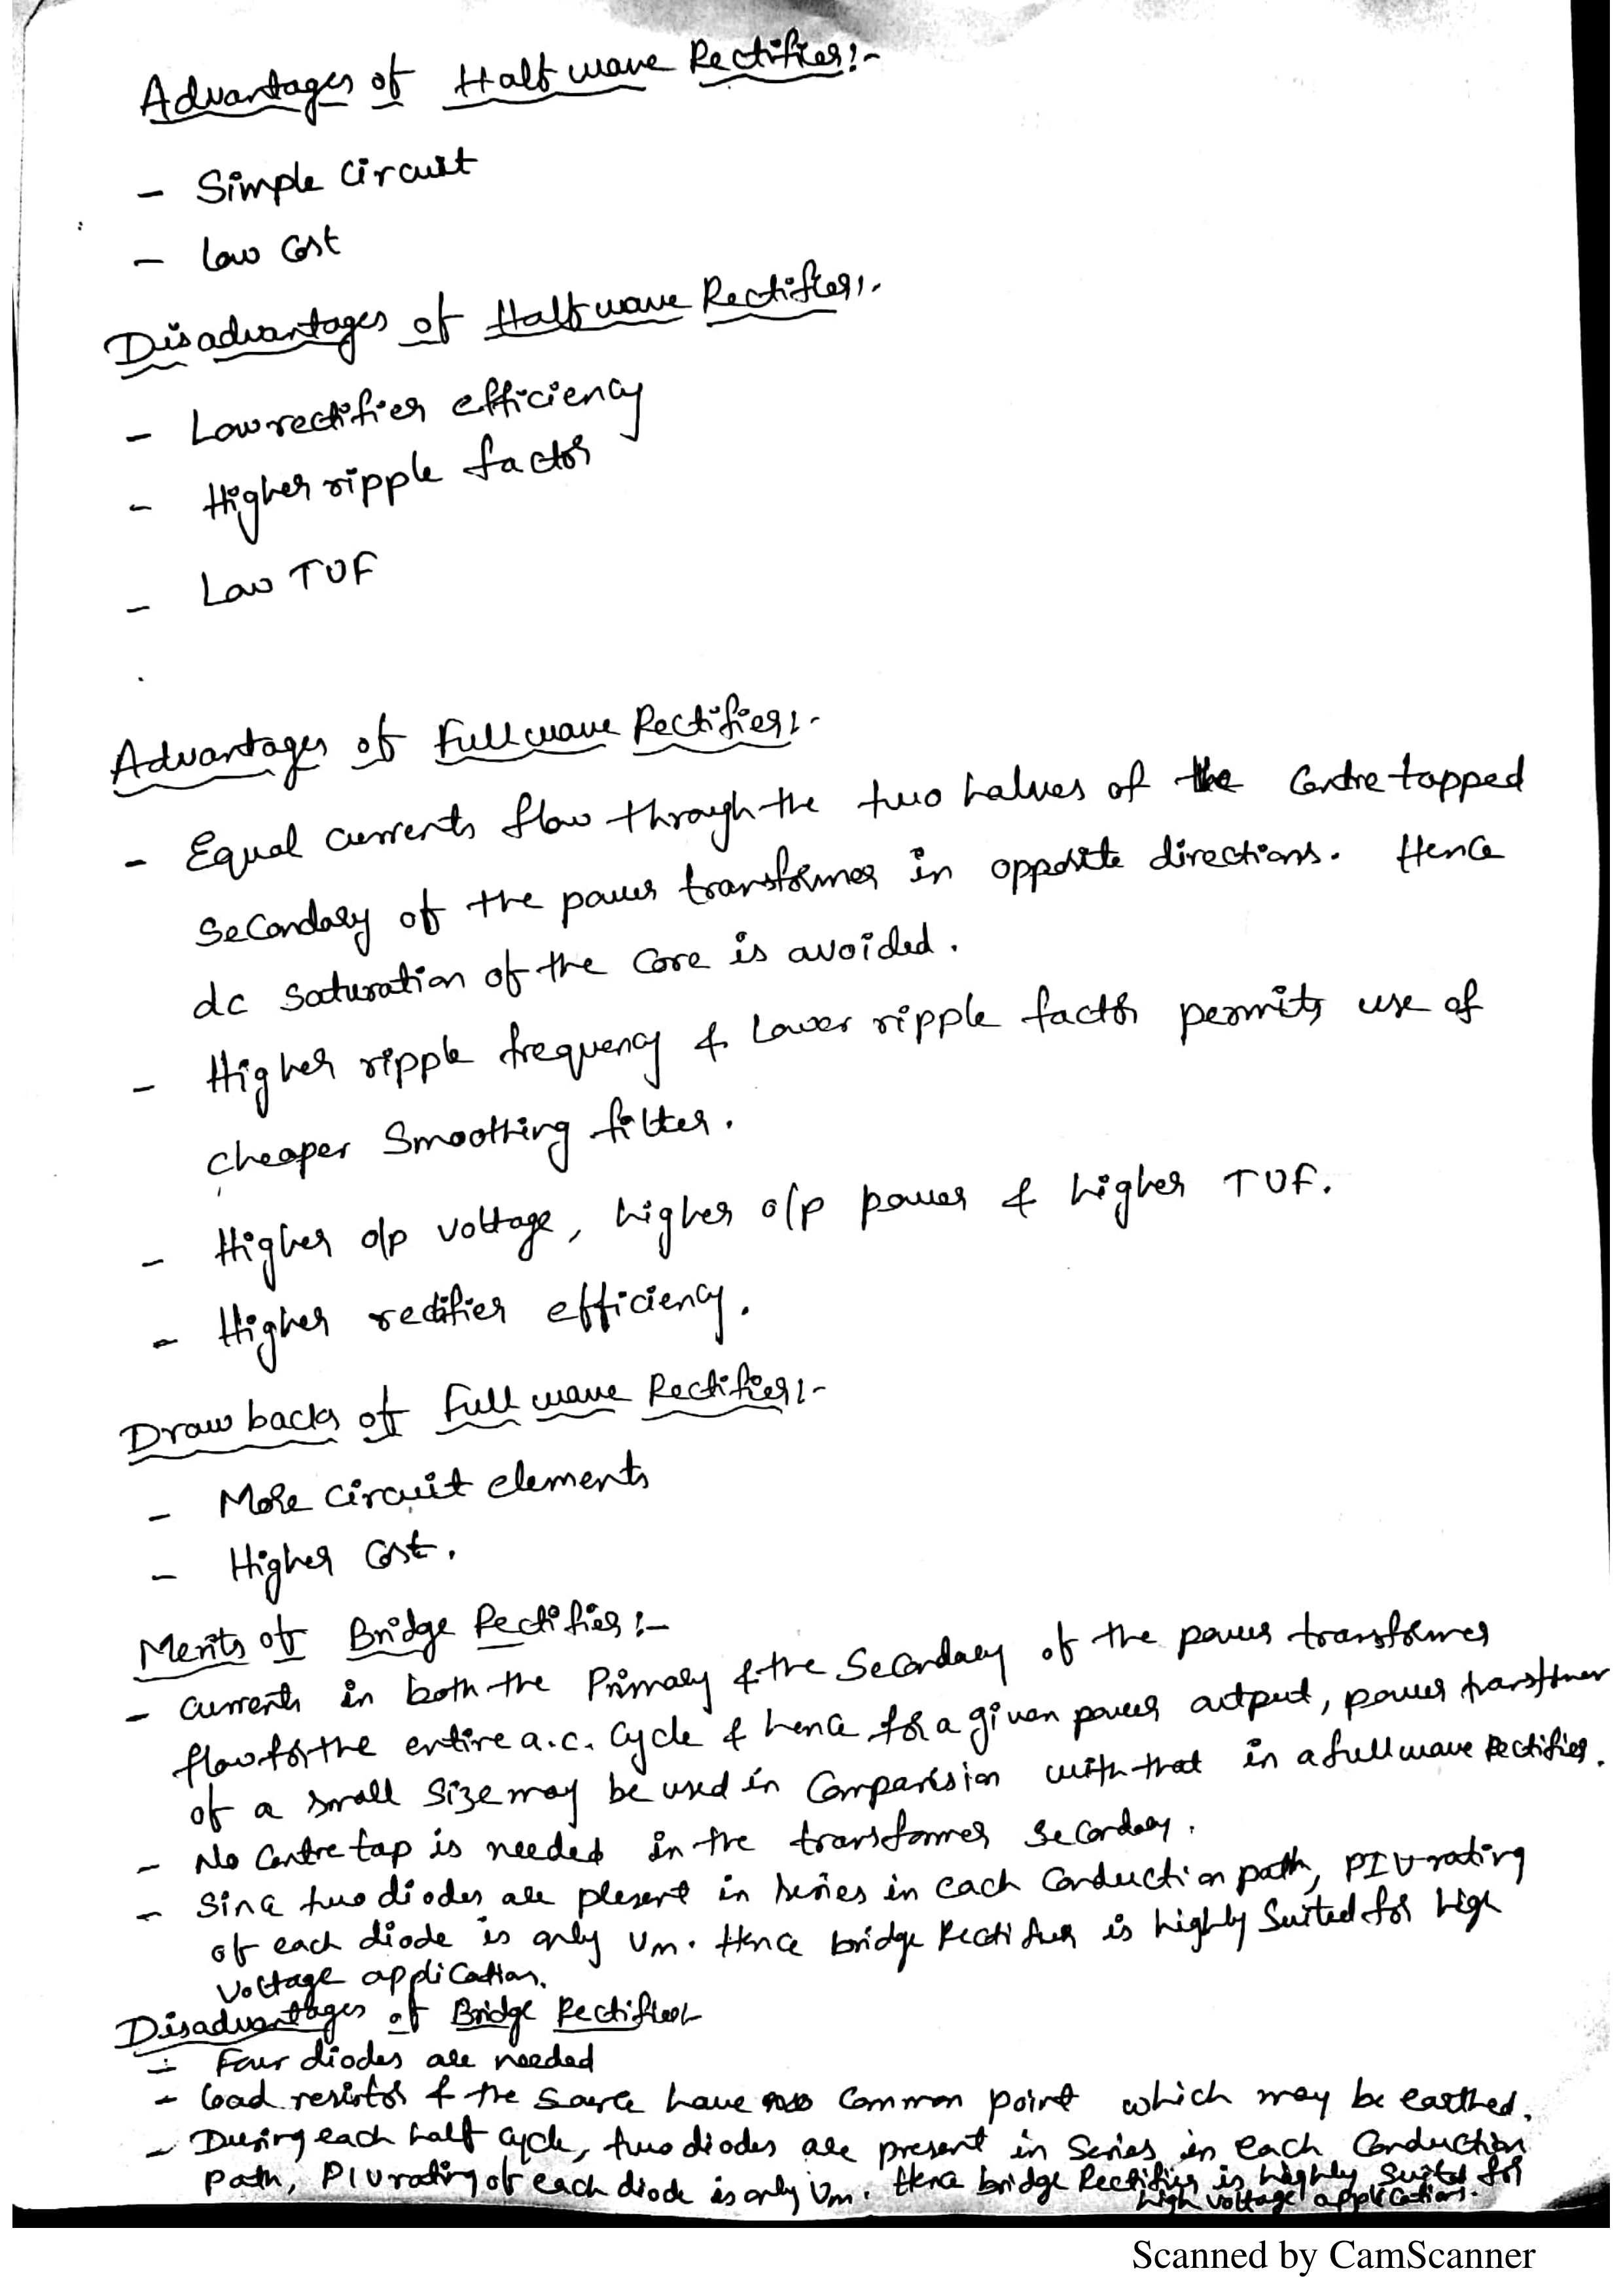 Advantages of Half wave Rectifier:-
- Simple Circuit
- Low Cost
Disadvantages of Half wave Rectifier:-
- Low rectifier efficiency
- Higher ripple factor
- Low TUF
Advantages of Full wave Rectifier:-
- Equal currents flow through the two halves of the Centre tapped
Secondary of the power transformer in opposite directions. Hence
dc saturation of the core is avoided.
- Higher ripple frequency & Lower ripple factor permits use of
cheaper Smoothing filter.
- Higher o/p voltage, higher o/p power & higher TUF.
- Higher rectifier efficiency.
Draw backs of Full wave Rectifier:-
- More Circuit elements
- Higher Cost.
Merits of Bridge Rectifier:-
- Currents in both the Primary & the Secondary of the power transformer
flow for the entire a.c. Cycle & hence for a given power output, power transformer
of a small Size may be used in Comparision with that in a full wave Rectifier.
- No Centre tap is needed in the transformer Secondary.
- Since two diodes are present in series in each Conduction path, PIV rating
of each diode is only Vm. Hence bridge Rectifier is highly Suited for high
Voltage application.
Disadvantages of Bridge Rectifier:-
- Four diodes are needed
- Load resistor & the Source have no Common point which may be earthed.
- During each half cycle, two diodes are present in Series in each Conduction
Path, PIV rating of each diode is only Vm. Hence bridge Rectifier is highly Suited for
high voltage application.
Scanned by CamScanner